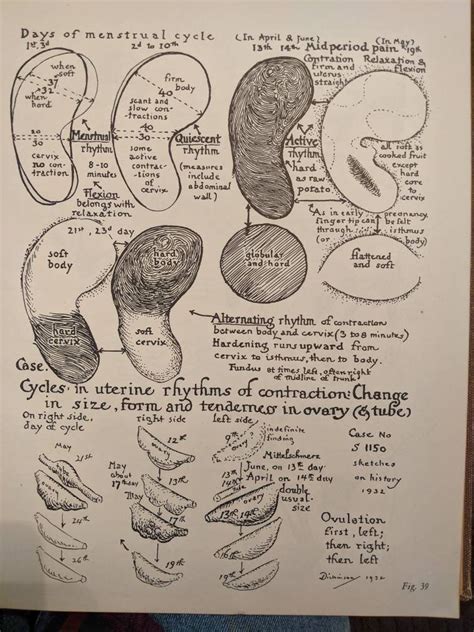 Days of menstrual cycle
1st, 3d
2d to 10th
(In April & June)
13th 14th
Midperiod pain
(In May)
19th
when soft
37
32
when hard
20
30
cervix
no con-
traction
Menstrual
rhythm
8-10
minutes
Flexion
belongs with
relaxation
firm
body
40
scant and
slow con-
tractions
40
30
some
active
contrac-
tions
of
cervix
Quiescent
rhythm
(measures
include
abdominal
wall)
Contration
firm and
uterus
straight
Relaxation &
flexion
Active
rhythm
hard
as raw
potato.
all soft as
cooked fruit
except
hard
core to
cervix
As in early pregnancy
finger tip can be felt
through isthmus
(or body)
21st, 23d day
soft
body
hard
cervix
hard
body
soft
cervix
globular
and hard
flattened
and soft
Alternating rhythm of contraction
between body and cervix (3 to 8 minutes)
Hardening runs upward from
cervix to isthmus, then to body.
Fundus at times left, often right
of midline of trunk)
Case:
Cycles in uterine rhythms of contraction: Change
in size, form and tenderness in ovary (& tube)
On right side,
day of cycle
May
21st
24th
26th
right side
12th
May
about
17th day
17th
19th
left side
9th
indefinite
finding
Mittelschmerz
June, on 13th day
April on 14th day
13th
14th
ovary
double
usual
size
13th 14th
19th
Case No
S 1150
sketches
on history
1932
Ovulation
first, left;
then right;
then left
Dickinson 1932
Fig. 39